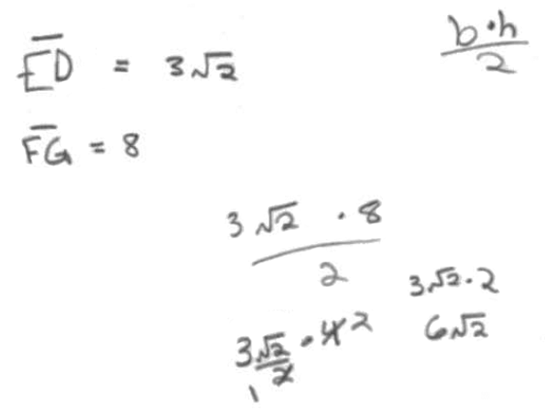 ED = 3√2
b·h
2
FG = 8
3√2 · 8
2
3√2 · 2
6√2
3√2 · 4 2
2
1